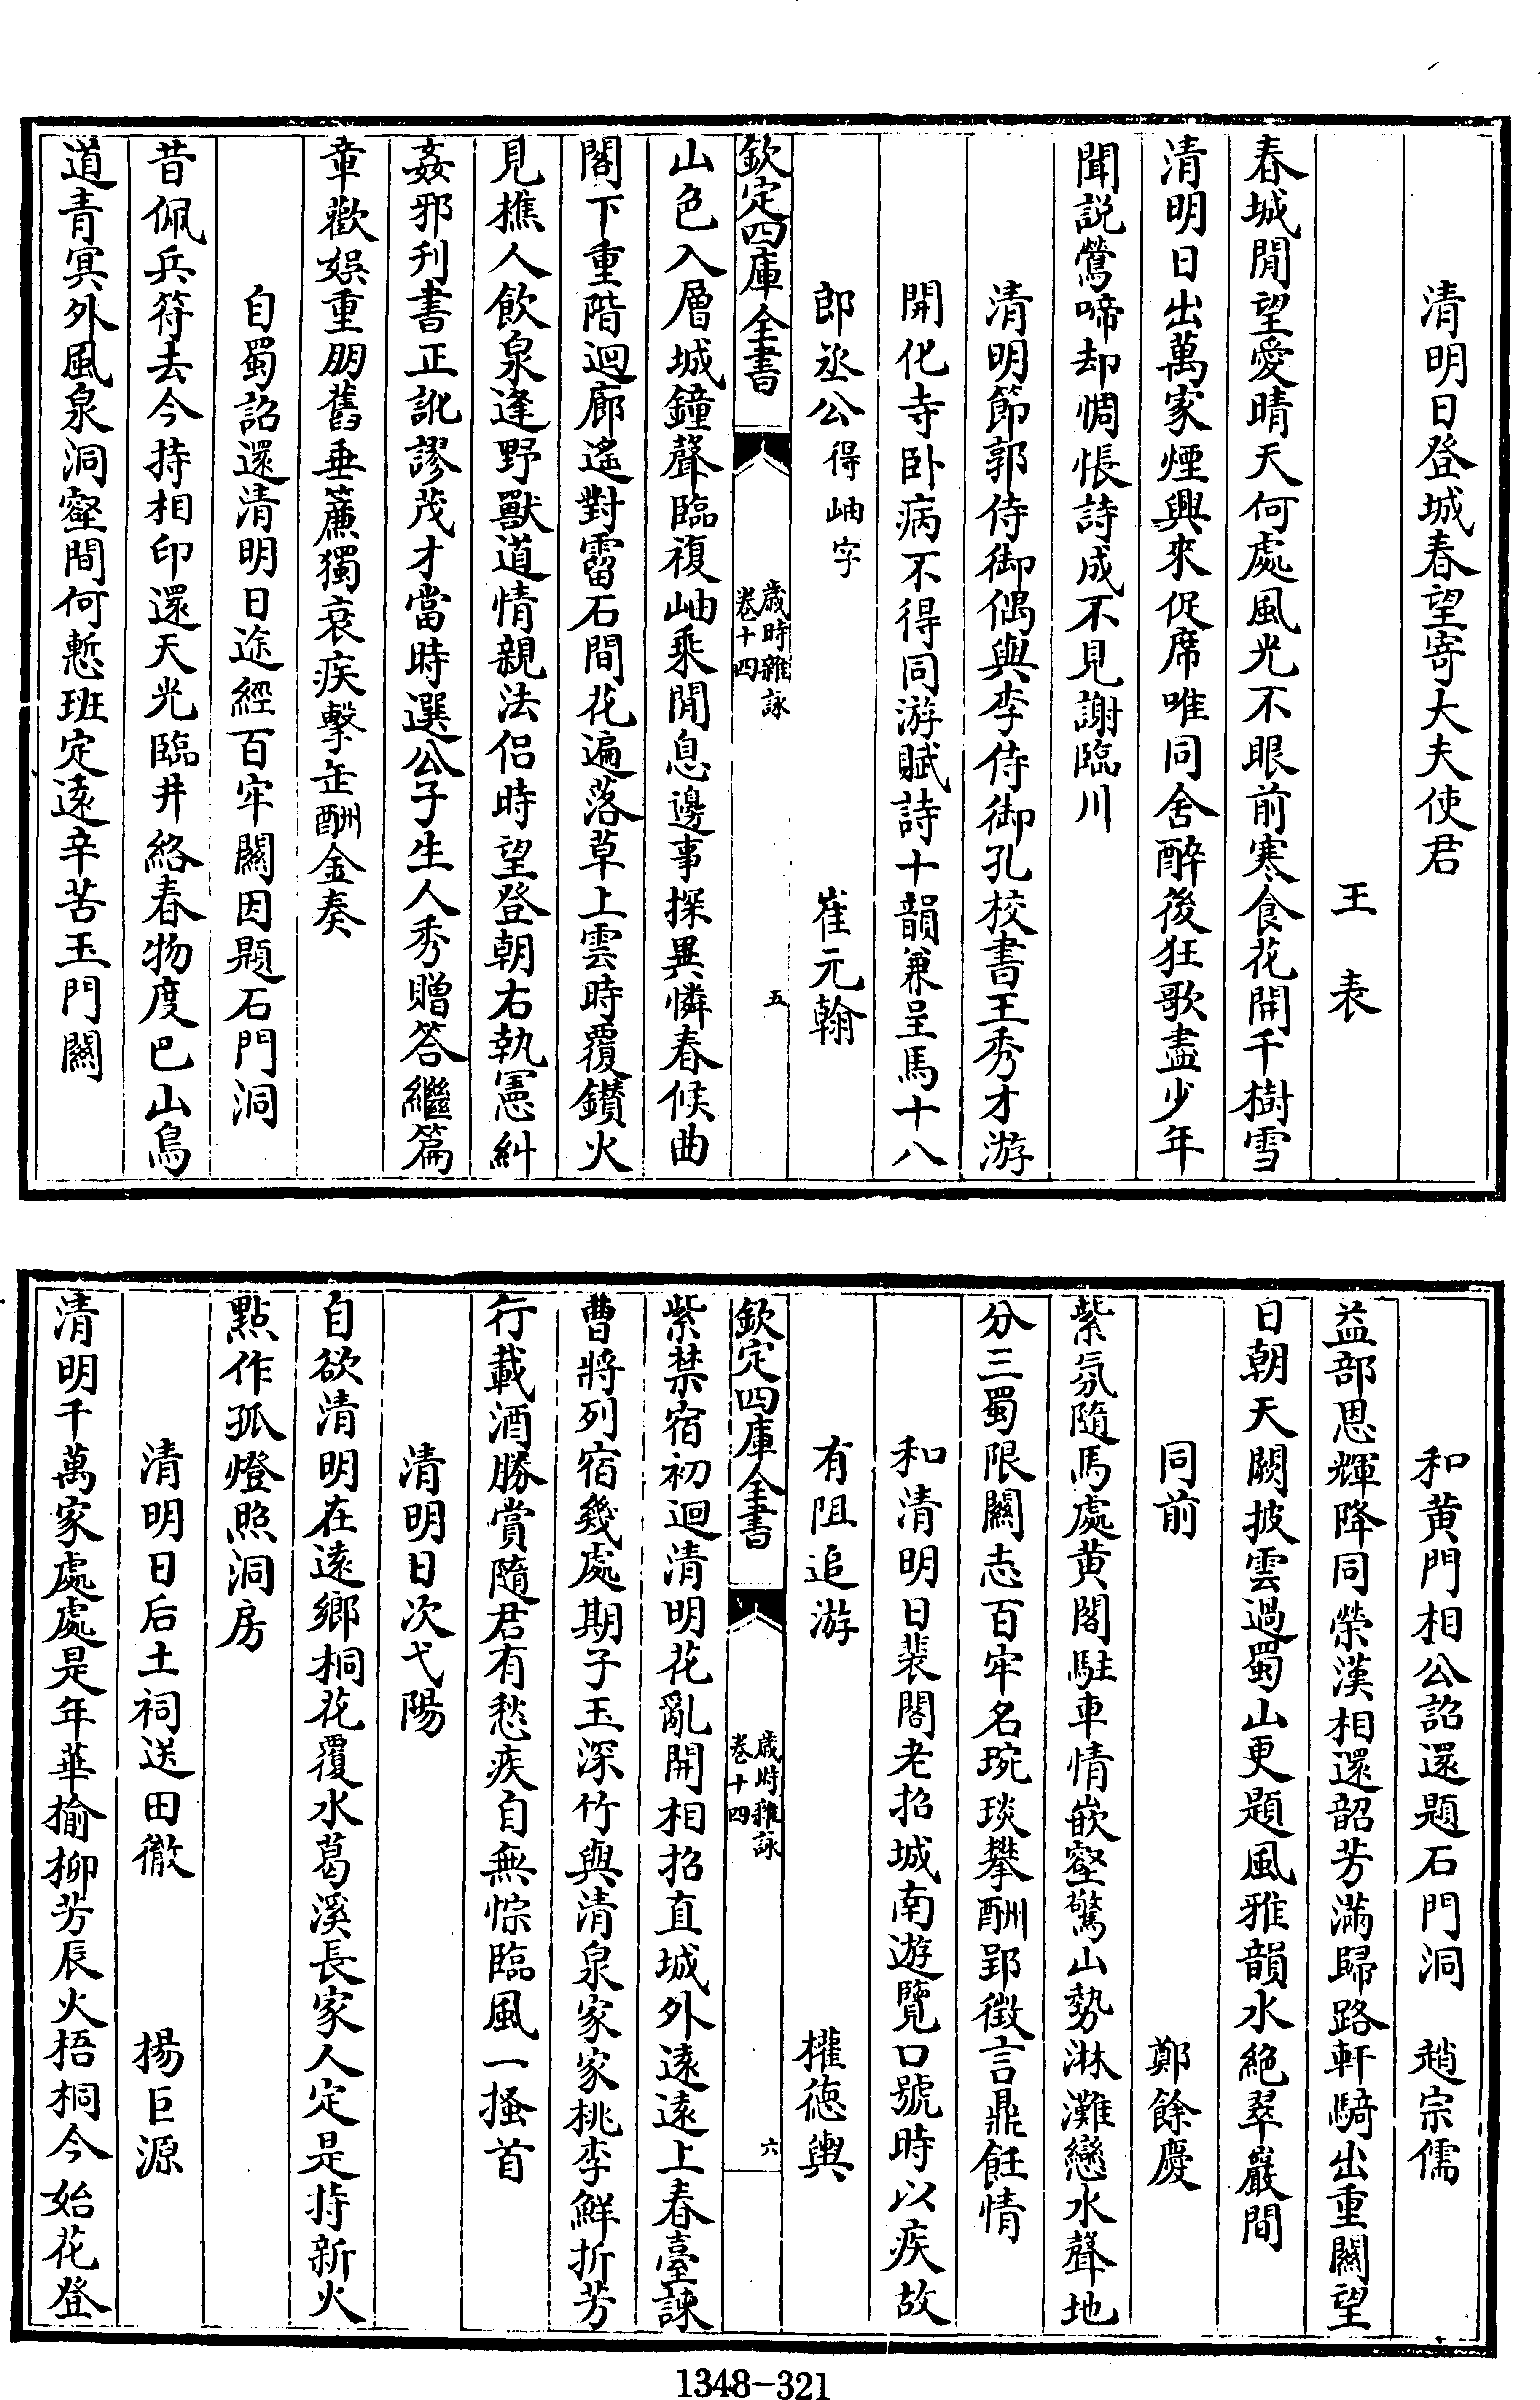 清明日登城春望寄大夫使君
王表
春城閒望愛晴天何處風光不眼前寒食花開千樹雪
清明日出萬家煙興來促席唯同舍醉後狂歌盡少年
聞説鶯啼却惆悵詩成不見謝臨川
清明節郭侍御偶與李侍御孔校書王秀才游
開化寺卧病不得同游賦詩十韻兼呈馬十八
郎丞公得岫字 崔元翰
欽定四庫全書 歲時雜詠 卷十四 五
山色入層城鐘聲臨複岫乘閒息邊事探異憐春候曲
閣下重階迴廊遙對霤石間花遍落草上雲時覆鑚火
見樵人飲泉逢野獸道情親法侣時望登朝右執憲糾
姦邪刋書正訛謬茂才當時選公子生人秀贈答繼篇
章歡娱重朋舊垂簾獨衰疾擊缶酬金奏
自蜀詔還清明日途經百牢關因題石門洞
昔佩兵符去今持相印還天光臨井絡春物度巴山鳥
道青冥外風泉洞壑間何慙班定遠辛苦玉門關
和黄門相公詔還題石門洞 趙宗儒
益部恩輝降同榮漢相還韶芳滿歸路軒騎出重關望
日朝天闕披雲過蜀山更題風雅韻永絶翠巖間
同前 鄭餘慶
紫氛隨馬處黄閣駐車情嵌壑驚山勢淋灘戀水聲地
分三蜀限關志百牢名琬琰攀酬郢徴言鼎飪情
和清明日裴閣老招城南遊覽口號時以疾故
有阻追游 權德輿
欽定四庫全書 歲時雜詠 卷十四 六
紫禁宿初迴清明花亂開相招直城外遠遠上春臺諫
曹將列宿幾處期子玉深竹與清泉家家桃李鮮折芳
行載酒勝賞隨君有愁疾自無悰臨風一搔首
清明日次弋陽
自欲清明在遠鄉桐花覆水葛溪長家人定是持新火
點作孤燈照洞房
清明日后土祠送田徹 楊巨源
清明千萬家處處是年華榆柳芳辰火梧桐今始花登
1348-321